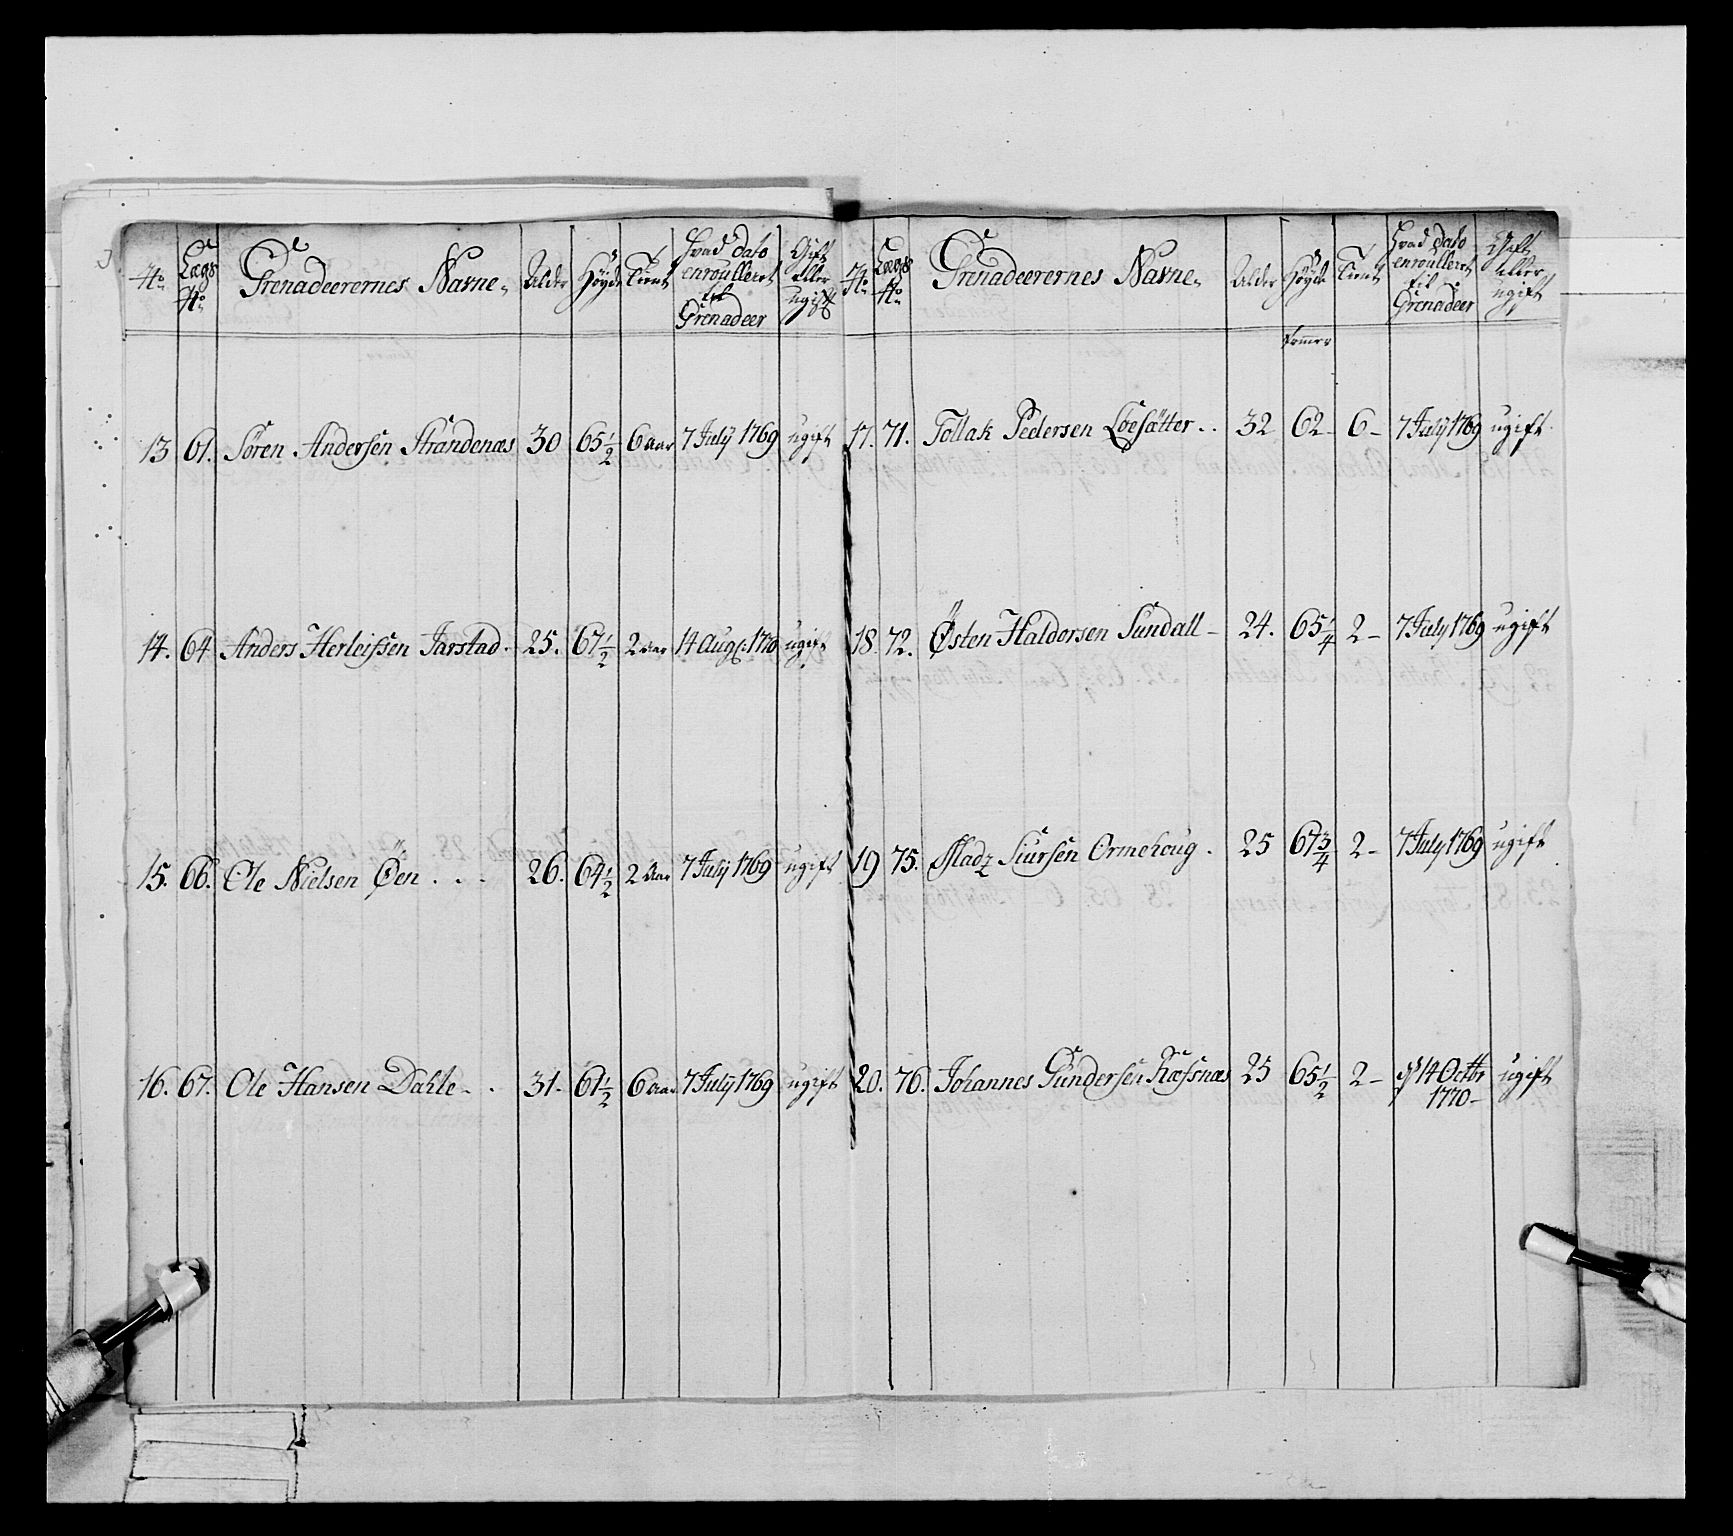 No
Lægs No
Grenadeerernes Navne
Alder
Høyde
Tient
Hvad dato enroulleret til Grenadeer
Gift eller ugift
13 61. Søren Andersen Strandenæs 30 65 1/2 6 aar 7 July 1769 ugift
14. 64 Anders Herleifsen Jarstad. 25. 67 1/2 2 aar 14 Aug: 1770 ugift
15. 66. Ole Nielsen Öen . . . 26. 64 1/2 2 Aar 7 July 1769 ugift
16. 67. Ole Hansen Dahle - . 31. 61 1/2 6 Aar 7 July 1769 ugift
No
Lægs No
Grenadeerernes Navne
Alder
Høyde
Tient
Hvad dato enroulleret til Grenadeer
Gift eller ugift
17. 71. Tollak Pedersen Loesætter . . 32 62 - 6 - 7 July 1769 ugift
18. 72. Østen Haldorsen Sundall - 24. 65 1/4 2 - 7 July 1769 ugift
19 75. Madz Siursen Ormehoug . 25 67 3/4 2 - 7 July 1769 ugift
20. 76. Johannes Gundersen Ræfsnæs 25 65 1/2 2 - d 14 Octbr 1770 - ugift